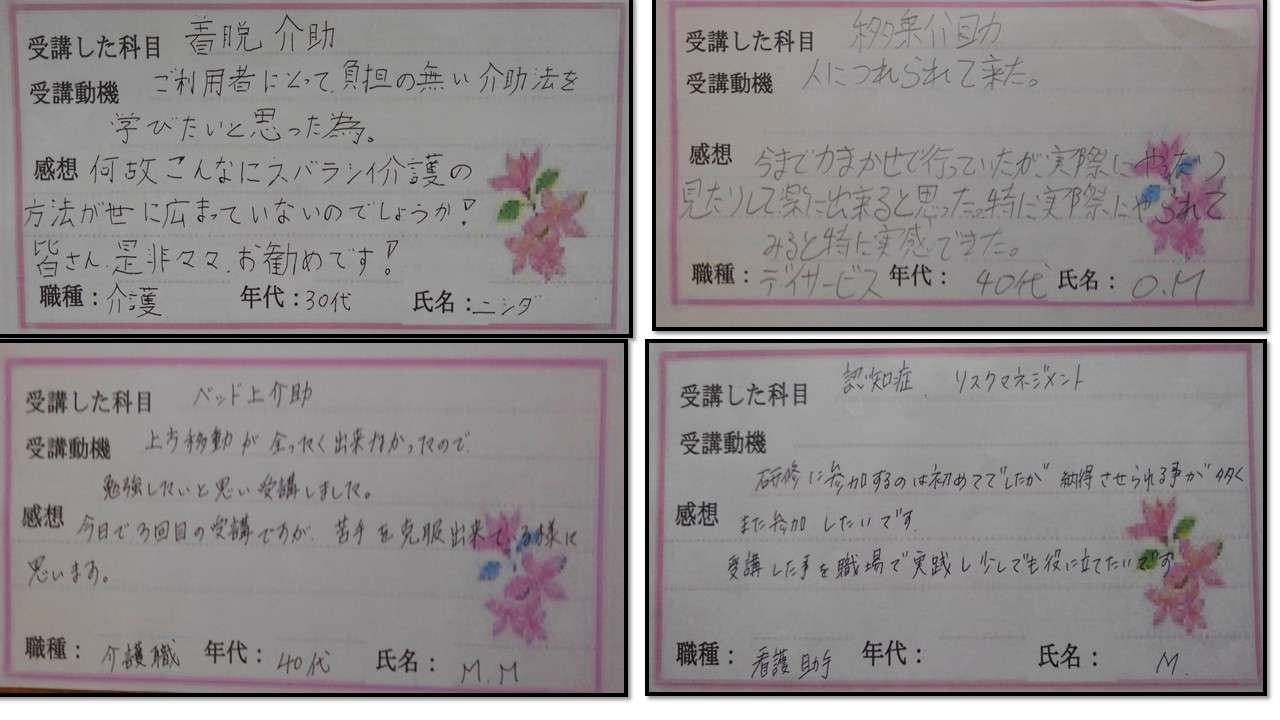 受講した科目 着脱 介助
受講動機 ご利用者にとって、負担の無い介助法を
学びたいと思った為。
感想 何故こんなにスバラシイ介護の
方法が世に広まっていないのでしょうか!
皆さん、是非々々、お勧めです!
職種:介護 年代:30代 氏名:ニシダ
受講した科目 移乗介助
受講動機 人につれられて来た。
感想 今まで力まかせで行っていたが、実際にやったり
見たりして、楽に出来ると思った。特に実際にやられて
みると特に実感できた。
職種:デイサービス 年代: 40代 氏名: O.M
受講した科目 ベッド上介助
受講動機 上方移動が全ったく出来なかったので、
勉強したいと思い受講しました。
感想 今日で3回目の受講ですが、苦手を克服出来ている様に
思います。
職種: 介護職 年代: 40代 氏名: M.M
受講した科目 認知症 リスクマネジメント
受講動機
研修に参加するのは初めてでしたが 納得させられる事が多く
感想 また参加したいです。
受講した事を職場で実践し少しでも役に立てたいです
職種: 看護助手 年代: 氏名: M.